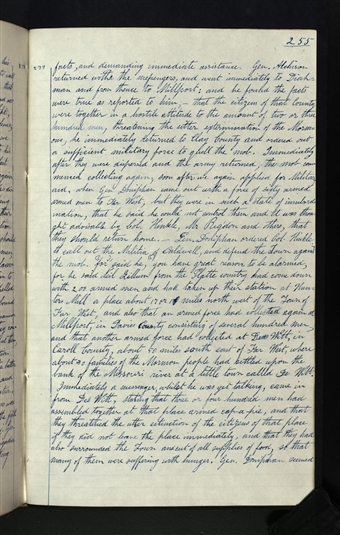 255
facts, and demanding immediate assistance. Gen. Atchison
returned with the messengers, and went immediately to Diah-
man and from thence to Millport; and he found the facts
were true as reported to him; — that the citizens of that County
were together in a hostile attitude to the amount of two or three
hundred men, threatening the utter extermination of the Morm-
ons, he immediately returned to Clay County and raised out
a sufficient military force to quell the mob. Immediately
after they were dispersed and the army returned, the mob com-
menced collecting again, soon after we again applied for Military
aid, when Gen. Doniphan came out with a force of sixty armed
armed men to Far West, but they were in such a state of insubord-
ination, that he said he could not control them and it was thou-
ght advisable by Col. Hinkle, Mr Rigdon and others, that
they should return home. — Gen. Doniphan ordered Col. Hinkle
to call out the militia of Caldwell, and defend the town against
the mob, for said he, you have great reason to be alarmed;
for he said Neil Gillium from the Platte country had come down
with 200 armed men and had taken up their station at Hun-
ters Mill a place about 17 or 18 miles north west of the Town of
Far West, and also that an armed force had collected again at
Millport, in Davies County consisting of several hundred men,
and that another armed force had collected at De Witt, in
Caroll County, about 50 miles south east of Far West, where
about 70 families of the Mormon people had settled upon the
bank of the Missouri river at a little town called De Witt.
Immediately a messenger, whilst he was yet talking, came in
from De Witt, stating that three or four hundred men had
assembled together at that place armed cap-a-pie, and that
they threatened the utter extinction of the citizens of that place
if they did not leave the place immediately, and that they had
also surrounded the Town and cut off all supplies of food, so that
many of them were suffering with hunger. Gen. Doniphan seemed